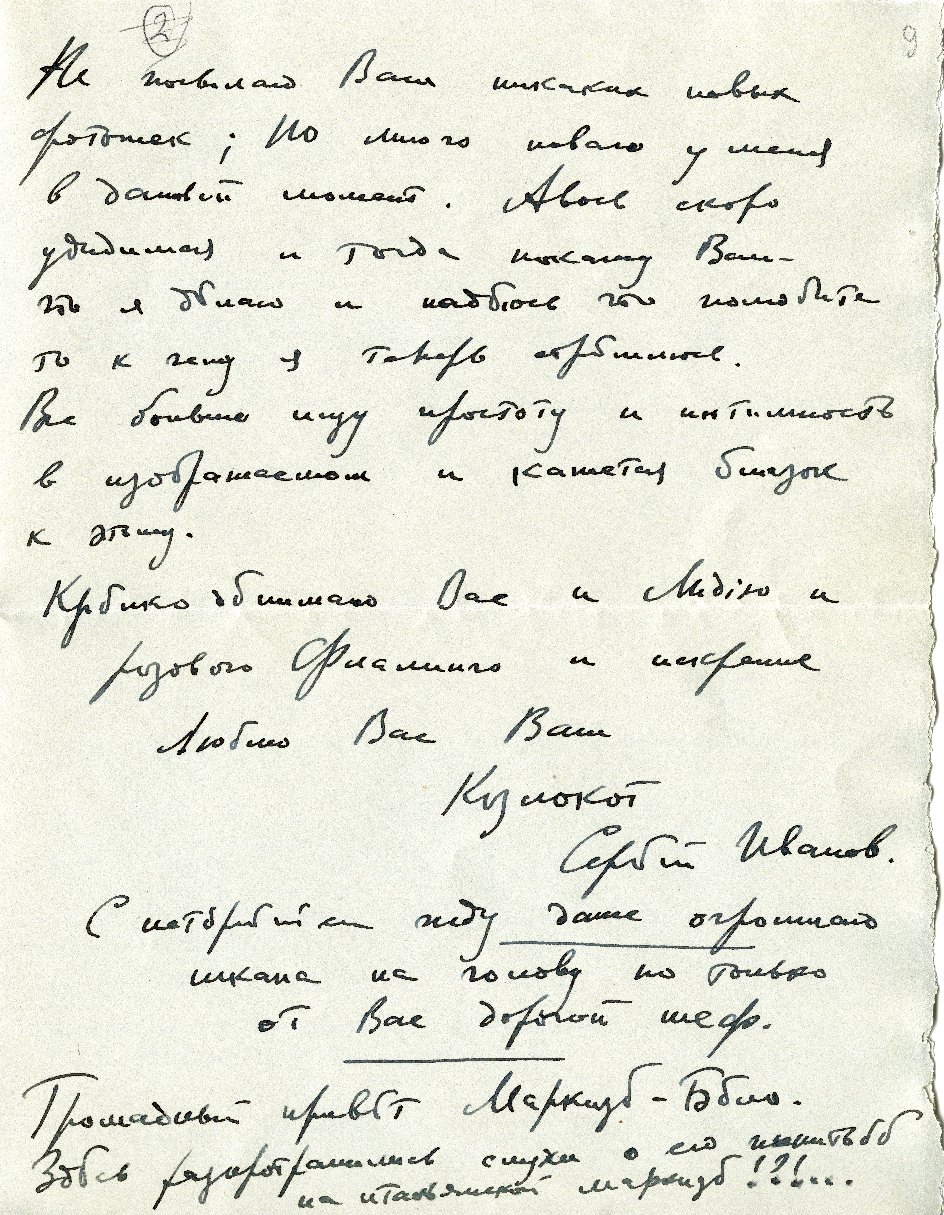 2
9
Не посылаю Вам никаких новых
фотошек; Но много новаго у меня
в данный момент. Авось скоро
увидимся и тогда покажу Вам-
что я дѣлаю и надѣюсь что полюбите
то к чему я теперь стрѣмлюсь.
Все больше ищу простоту и интимность
в изображаемом и кажется близок
к этому.
Крѣпко обнимаю Вас и Лидію и
розового Фламинго и искренне
Люблю Вас Ваш
Козлокот
Сергѣй Иванов.
С нетерпѣнием жду даже огромнаго
шкапа на голову но только
от Вас дорогой шеф.
Громадный привѣт Маркизѣ-Бѣбло.
Здѣсь распространились слухи о его женитьбѣ
на итальянской маркизѣ!?!...